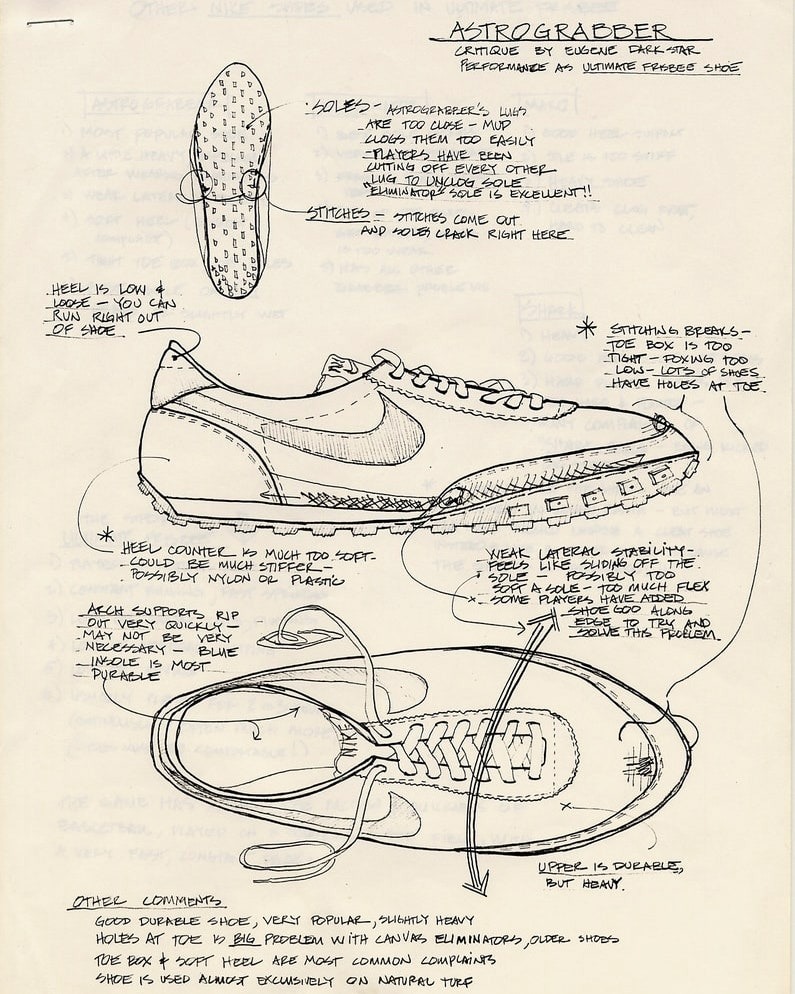 ASTROGRABBER
CRITIQUE BY EUGENE DARKSTAR
PERFORMANCE AS ULTIMATE FRISBEE SHOE
SOLES - ASTROGRABBER'S LUGS
ARE TOO CLOSE - MUD
CLOGS THEM TOO EASILY
- PLAYERS HAVE BEEN
CUTTING OFF EVERY OTHER
LUG TO UNCLOG SOLE
"ELIMINATOR" SOLE IS EXCELLENT!!
STITCHES - STITCHES COME OUT
AND SOLES CRACK RIGHT HERE
HEEL IS LOW &
LOOSE - YOU CAN
RUN RIGHT OUT
OF SHOE
* STITCHING BREAKS -
TOE BOX IS TOO
TIGHT - FOXING TOO
LOW - LOTS OF SHOES
HAVE HOLES AT TOE.
* HEEL COUNTER IS MUCH TOO SOFT -
COULD BE MUCH STIFFER -
POSSIBLY NYLON OR PLASTIC
WEAK LATERAL STABILITY -
FEELS LIKE SLIDING OFF THE
SOLE - POSSIBLY TOO
SOFT A SOLE - TOO MUCH FLEX
SOME PLAYERS HAVE ADDED
SHOE GOO ALONG
EDGE TO TRY AND
SOLVE THIS PROBLEM.
ARCH SUPPORTS RIP
OUT VERY QUICKLY -
MAY NOT BE VERY
NECESSARY - BLUE
INSOLE IS MOST
DURABLE
UPPER IS DURABLE,
BUT HEAVY.
OTHER COMMENTS
GOOD DURABLE SHOE, VERY POPULAR, SLIGHTLY HEAVY
HOLES AT TOE IS BIG PROBLEM WITH CANVAS ELIMINATORS, OLDER SHOES
TOE BOX & SOFT HEEL ARE MOST COMMON COMPLAINTS
SHOE IS USED ALMOST EXCLUSIVELY ON NATURAL TURF